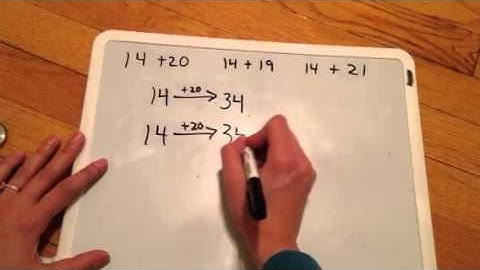 14 +20 14 + 19 14 + 21
14 +20 → 34
14 +20 → 3